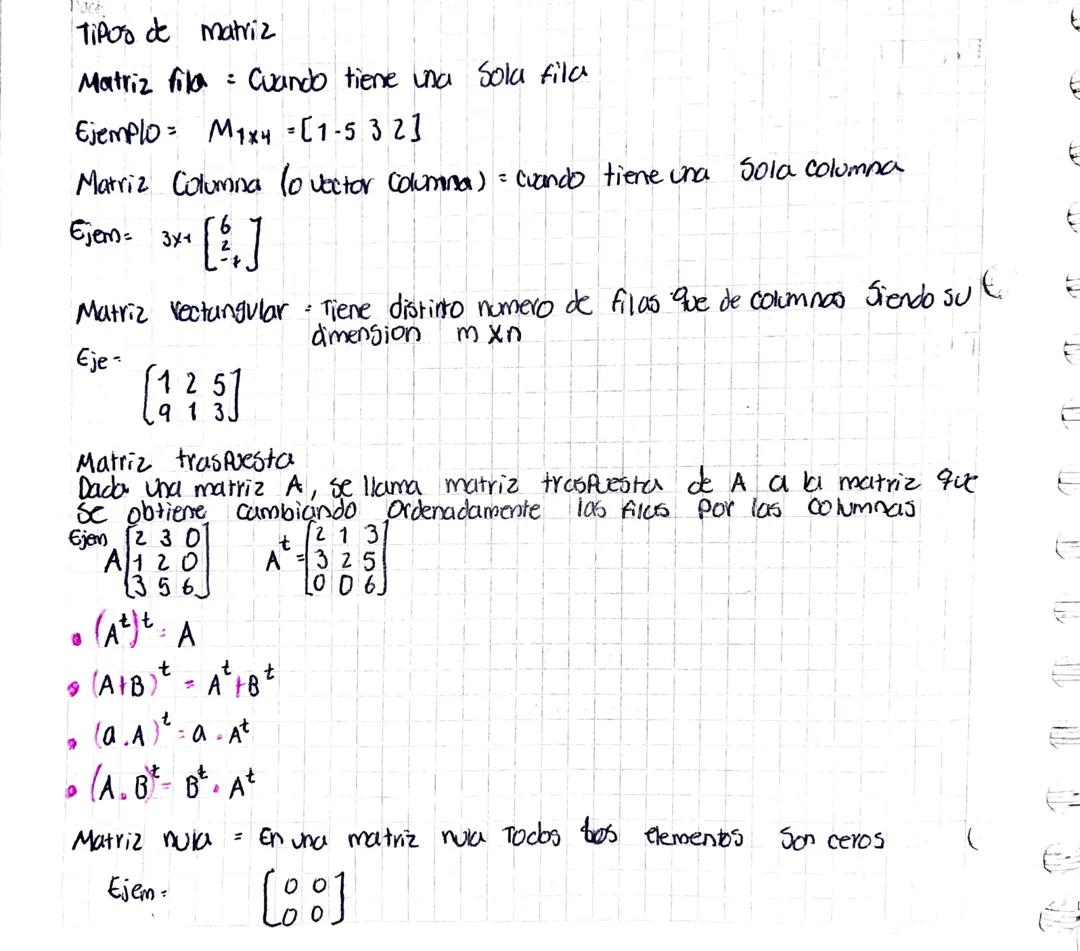 Tipos de matriz
Matriz fila = Cuando tiene una Sola fila
Ejemplo = M1x4 = [1 -5 3 2]
Matriz Columna (o vector Columna) = cuando tiene una Sola columna
Ejem = 3x1 [6
2
]
Matriz rectangular = Tiene distinto numero de filas que de columnas Siendo su
dimension m x n
Eje =
[1 2 5
9 1 3]
Matriz traspuesta
Dada una matriz A, se llama matriz traspuesta de A a la matriz que
se obtiene cambiando Ordenadamente las filas por las columnas
Ejem A [2 3 0
1 2 0
3 5 6]
A^t = [2 1 3
3 2 5
0 0 6]
• (A^t)^t = A
• (A+B)^t = A^t + B^t
• (a.A)^t = a . A^t
• (A.B)^t = B^t . A^t
Matriz nula = En una matriz nula Todos los elementos Son ceros
Ejem = [0 0
0 0]